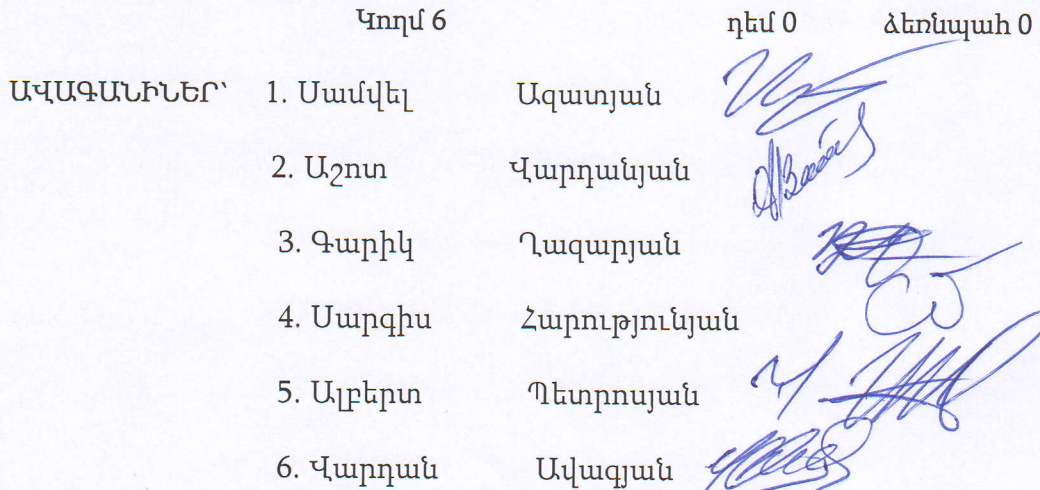 Կողմ 6 դեմ 0 ձեռնպահ 0
ԱՎԱԳԱՆԻՆԵՐ՝ 1. Սամվել Ազատյան
2. Աշոտ Վարդանյան
3. Գարիկ Ղազարյան
4. Սարգիս Հարությունյան
5. Ալբերտ Պետրոսյան
6. Վարդան Ավագյան